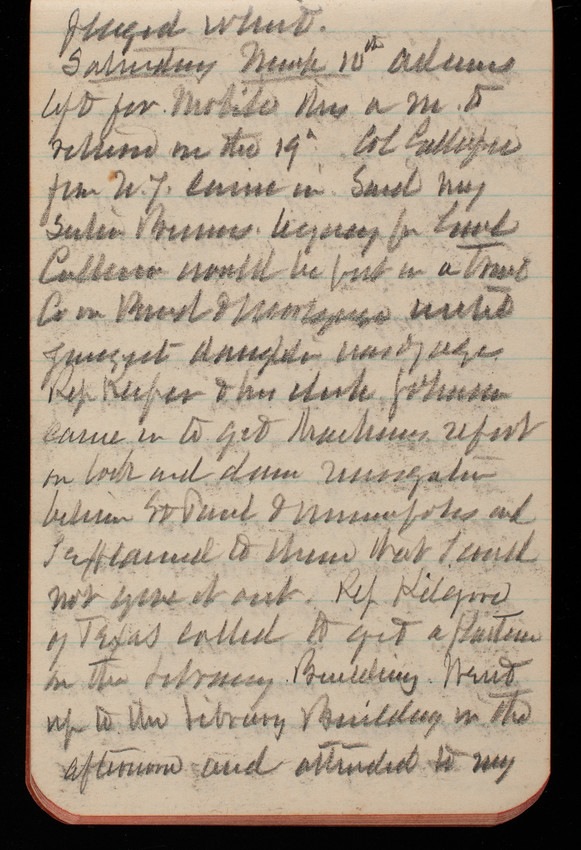 played whist.
Saturday March 10th Adams
left for Mobile this a m. to
return on the 19th Col
from N.Y. came in. Said my
legacy for
would be put in a Trust
Co on Bond & Mortgage until
youngest daughter was of age.
Rep Kiefer & his clerk Johnson
came in to get report
on lock and dam navigation
between St Paul & Minneapolis and
I explained to them that I could
not give it out. Rep Kilgore
of Texas called to get a
on the Library Building. Went
up to the Library Building in the
afternoon and attended to my